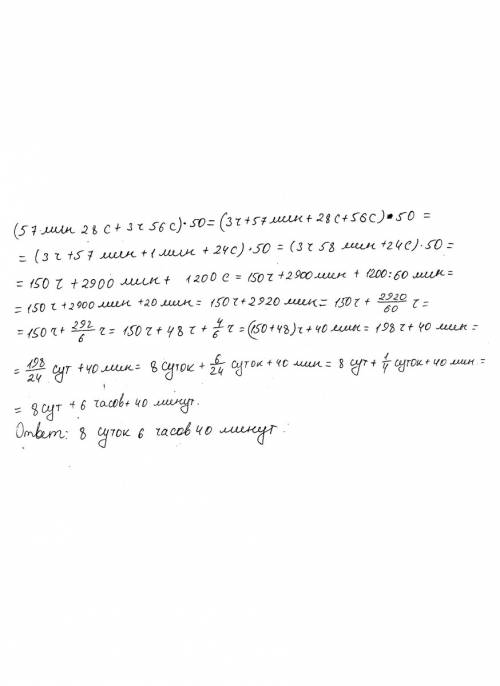 (57 мин 28 с + 3 ч 56 с)·50 = (3ч + 57 мин + 28 с + 56 с)·50 =
= (3ч + 57 мин + 1 мин + 24 с)·50 = (3ч 58 мин + 24 с)·50 =
= 150 ч + 2900 мин + 1200 с = 150 ч + 2900 мин + 1200:60 мин =
= 150 ч + 2900 мин + 20 мин = 150 ч + 2920 мин = 150 ч + 2920/60 ч =
= 150 ч + 292/6 ч = 150 ч + 48 ч + 4/6 ч = (150+48) ч + 40 мин = 198 ч + 40 мин =
= 198/24 сут + 40 мин = 8 суток + 6/24 суток + 40 мин = 8 сут + 1/4 суток + 40 мин =
= 8 сут + 6 часов + 40 минут.
Ответ: 8 суток 6 часов 40 минут.